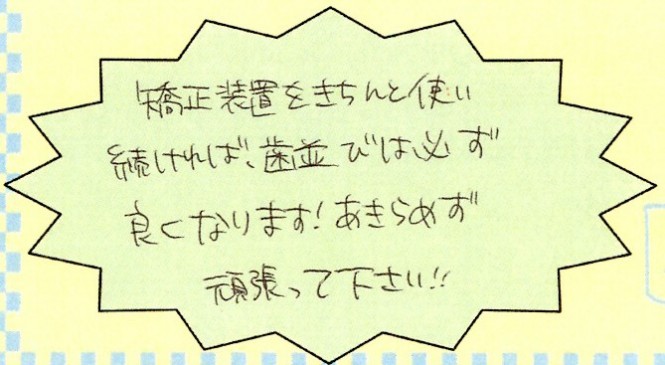 矯正装置をきちんと使い
続ければ、歯並びは必ず
良くなります!あきらめず
頑張って下さい!!